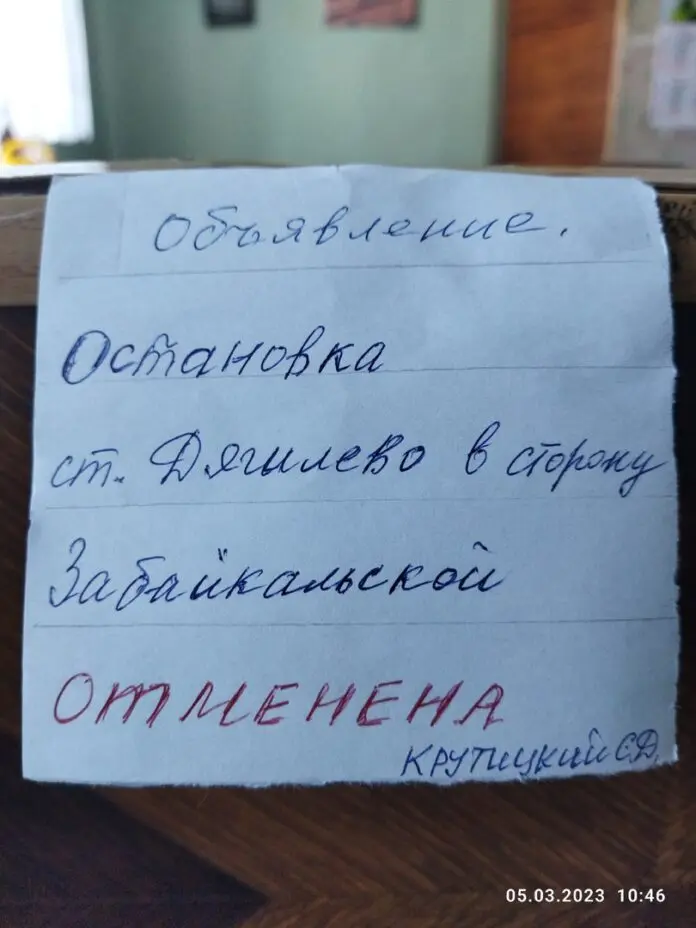 Объявление.
Остановка
ст. Дягилево в сторону
Забайкальской
ОТМЕНЕНА
КРУТИЦКИЙ С.Д.
05.03.2023 10:46